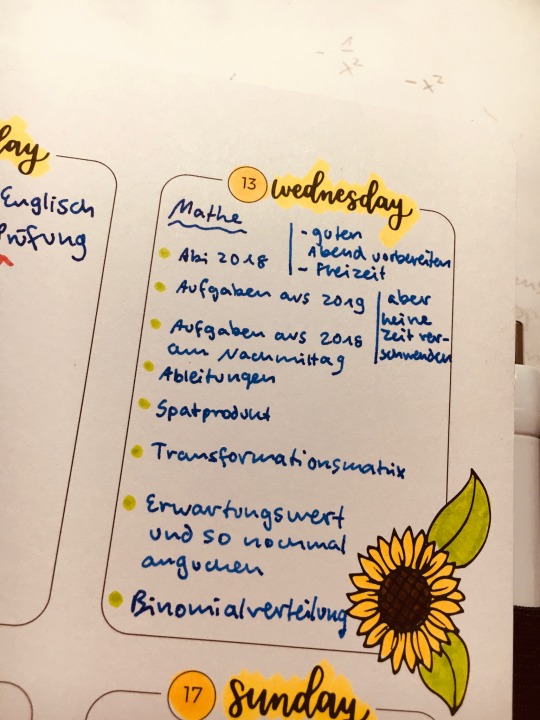 - 1/x²
- x²
day
Englisch
Prüfung
13 wednesday
Mathe
Abi 2018
- guten
Abend vorbereiten
- Freizeit
Aufgaben aus 2019
aber
keine
Zeit ver-
schwenden
Aufgaben aus 2018
am Nachmittag
Ableitungen
Spatprodukt
Transformationsmatrix
Erwartungswert
und so nochmal
angucken
Binomialverteilung
17 sunday